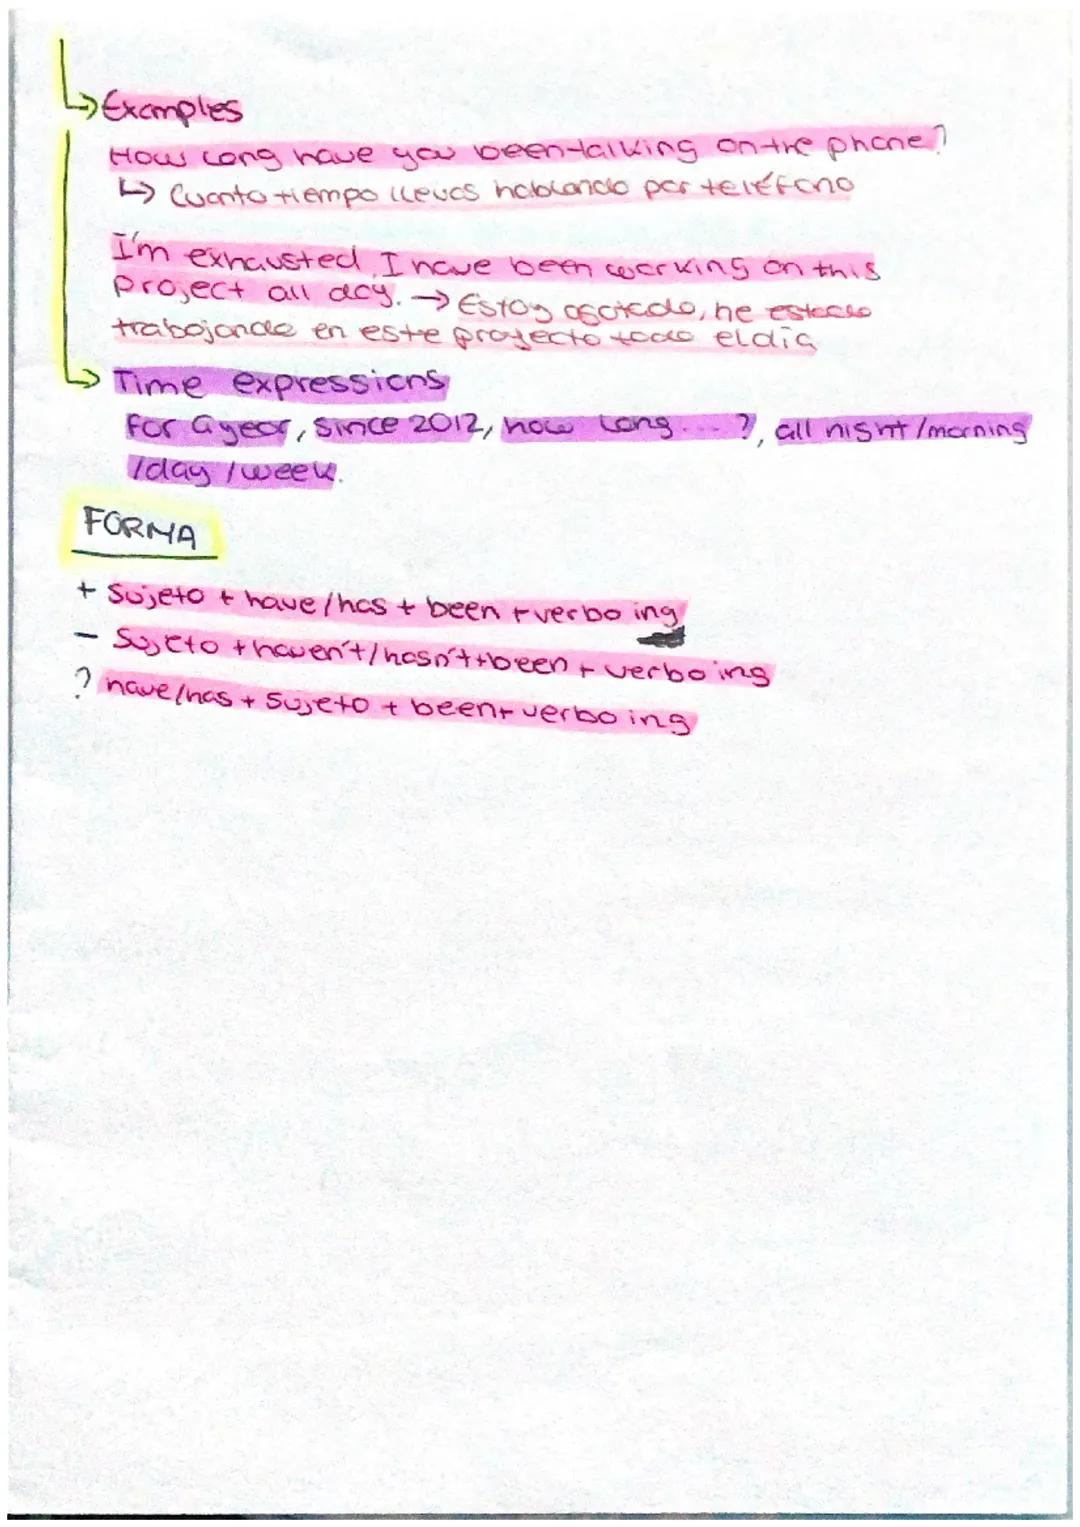 Examples
How long have you been talking on the phone?
↳ Cuanto tiempo llevas hablando por teléfono
I'm exhausted, I have been working on this
project all day. → Estoy agotado, he estado
trabajando en este proyecto todo el día
Time expressions
For a year, since 2012, how long ... ?, all night/morning
/day /week.
FORMA
+ Sujeto + have/has + been + verbo ing
- Sujeto + haven't/hasn't + been + verbo ing
? have/has + Sujeto + been + verbo ing